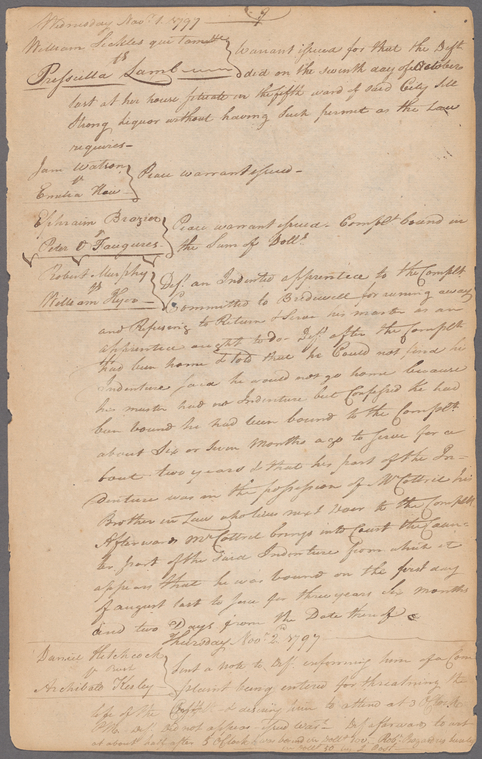 Wednesday Novr. 1. 1797
William Sickles qui tam
vs
Prissulla Lamb
Warrant issued for that the Deft
did on the seventh day of October
last at her house situate in the fifth ward of said City Sell
Strong liquor without having Such permit as the Law
requires—
Jam Watson
vs
Emelia How
Peace warrant issued—
Ephraim Brazier
vs
Peter D Faugeres
Peace warrant issued. Complt bound in
the Sum of Dolls
Robert Murphy
vs
William Hyer
Def. an Indented apprentice to the Complt
Committed to Bridewell for runing away
and Refusing to Return & Serve his master as an
apprentice ought to do Def after the Complt
had been home & told that he Could not find he
Indenture said he would not go home because
his master had no Indenture but Confessed he had
been bound he had been bound to the Complt
about Six or Seven Months ago to Serve for a
bout two years & that his part of the In-
denture was in the possession of Mr Cottrel his
Brother in Law who lives next door to the Complt
Afterwards Mr Cottrel brings into Court the Coun-
ter part of the said Indenture from which it
appears that he was bound on the first day
of august last to serve for three years six months
and two Days from the Date thereof
Thursday Novr. 2d. 1797
Daniel Hitchcock
vs
Archibald Kesley
Sent a note to Def. informing him of a Com
plaint being entered for threatning the
life of the Complt & desiring him to attend at 3 OClock
PM. Def. did not appear
at about half after 5 OClock